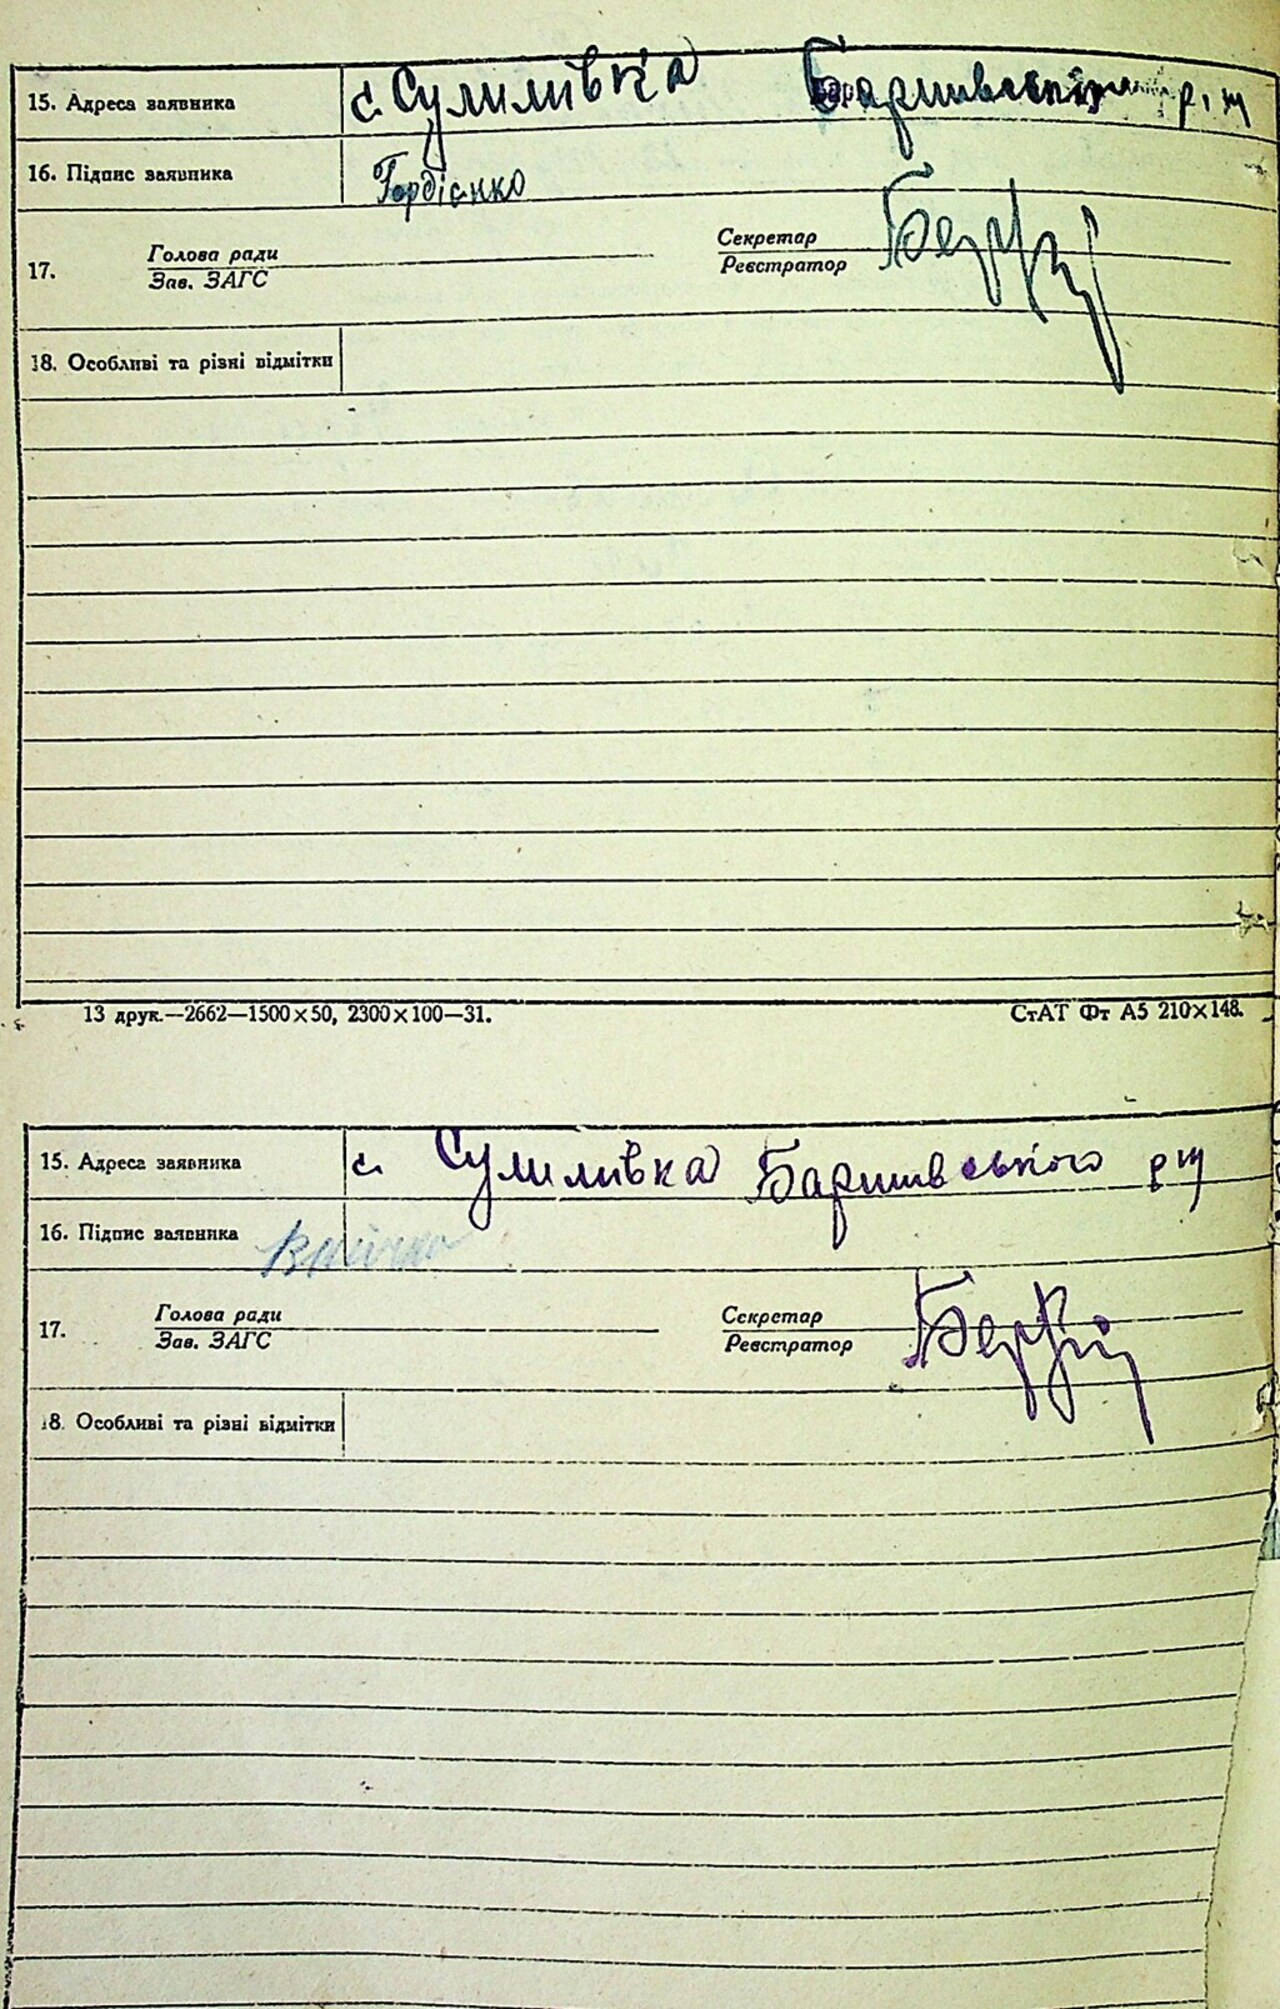 15. Адреса заявника с. Сулимівка Баришівський р. ну
16. Підпис заявника Гордієнко
17. Голова ради Секретар
Зав. ЗАГС Реєстратор
18. Особливі та різні відмітки
13 друк.—2662—1500×50, 2300×100—31. СтАТ Фт А5 210×148.
15. Адреса заявника с. Сулимівка Баришівського рну
16. Підпис заявника
17. Голова ради Секретар
Зав. ЗАГС Реєстратор
18. Особливі та різні відмітки